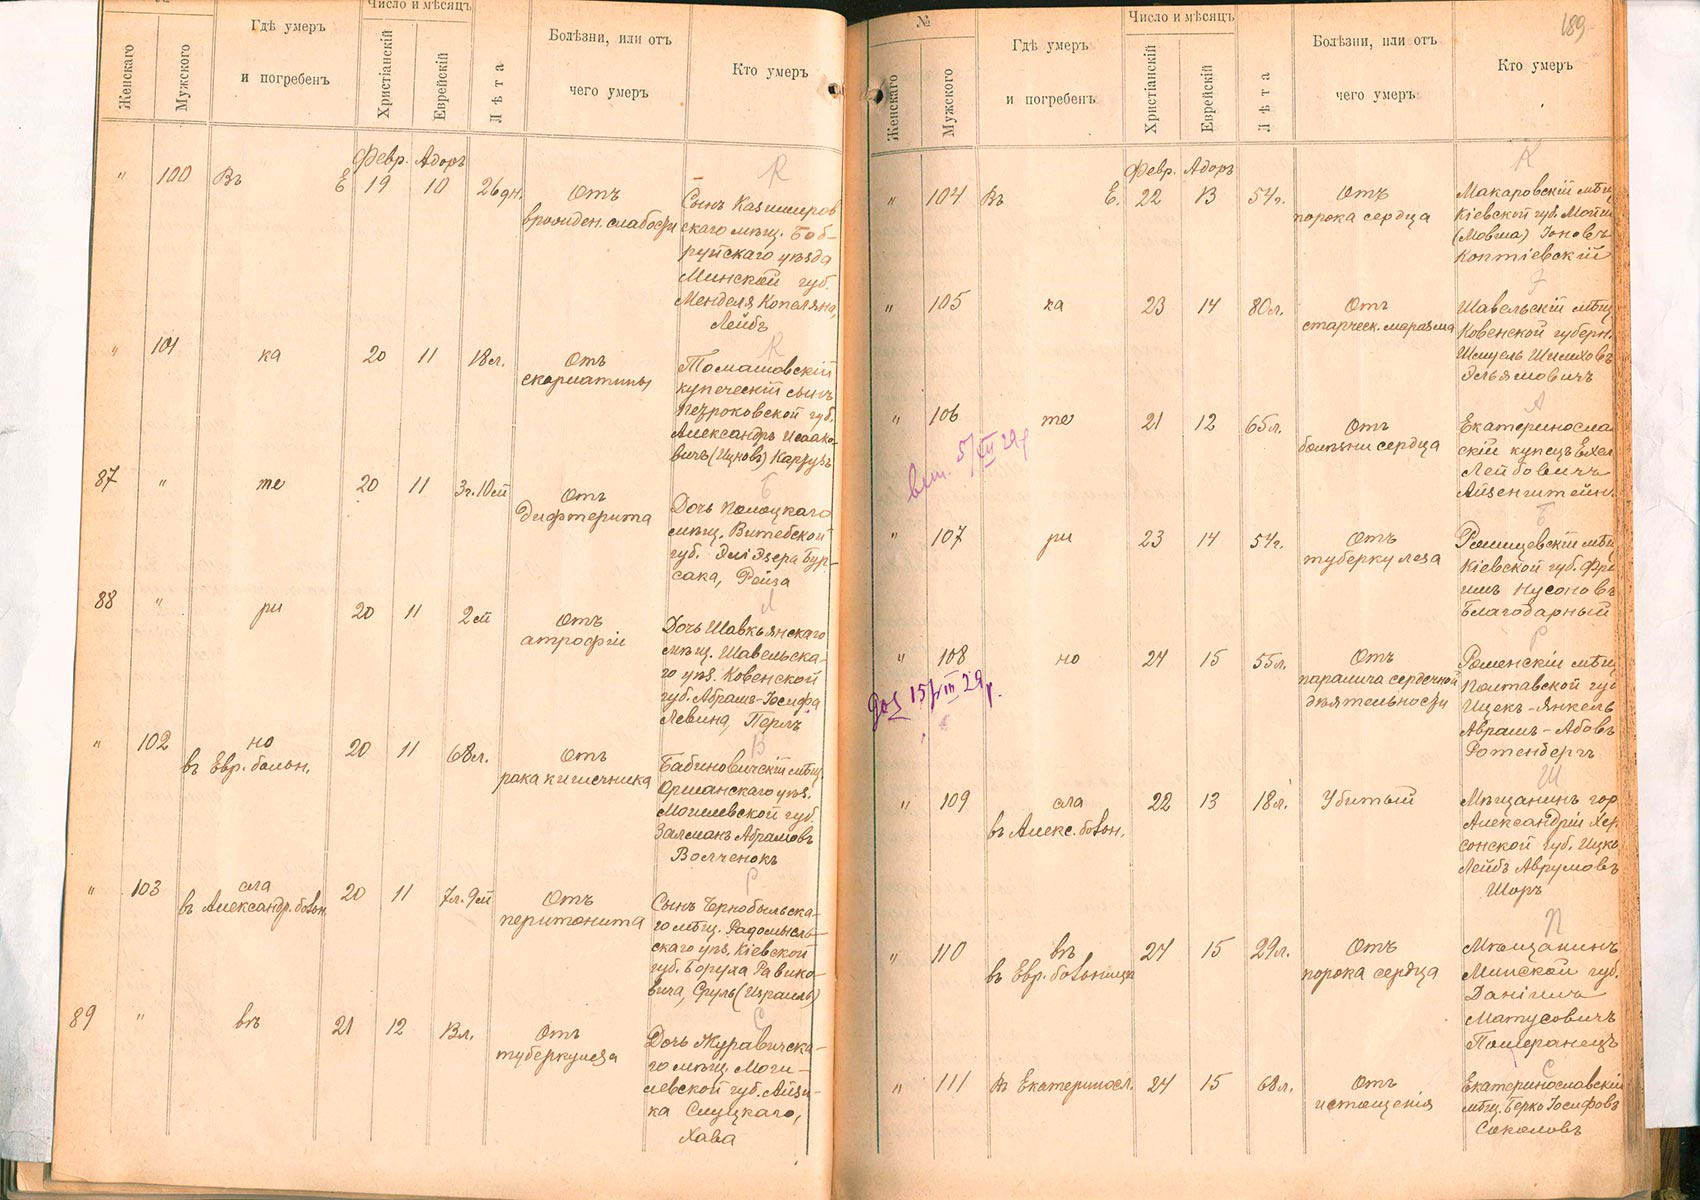 №
Женскаго
Мужского
Гдѣ умеръ
и погребенъ
Число и мѣсяцъ
Христіанскій
Еврейскій
Лѣта
Болѣзни, или отъ
чего умеръ
Кто умеръ
Февр. Адоръ
К
" 100 Въ Е 19 10 26 дн. Отъ
врожден. слабости
Сынъ Казимиров
скаго мѣщ. Боб-
руйскаго уѣзда
Минской губ.
Менделя Копеляна,
Лейбъ
К
" 101 ка 20 11 18 л. Отъ
скарлатины
Томашовскій
купеческій сынъ
Петроковской губ.
Александръ Исаако-
вичъ (Ицковъ)
Б
87 " те 20 11 3 г. 10 м Отъ
дифтерита
Дочь Полоцкаго
мѣщ. Витебской
губ. Эліэзера Бур-
сака, Рейза
Л
88 " ри 20 11 2 м Отъ
атрофіи
Дочь Шавкьянскаго
мѣщ. Шавельска-
го уѣз. Ковенской
губ. Абрамъ-Іосифа
Левина, Перлъ
В
" 102 но
въ Евр. больн. 20 11 68 л. Отъ
рака кишечника
Бабиновичскій мѣщ.
Оршанскаго уѣз.
Могилевской губ.
Залманъ Абрамовъ
Волченокъ
Р
" 103 сла
въ Александр. больн. 20 11 7 л. 9 м Отъ
перитонита
Сынъ Чернобыльска-
го мѣщ. Радомысль-
скаго уѣз. Кіевской
губ. Боруха Равико-
вича, Сруль (Израиль)
С
89 " въ 21 12 13 л. Отъ
туберкулеза
Дочь Журавичска-
го мѣщ. Моги-
левской губ. Айзи-
ка Слуцкаго,
Хава
189
№
Женскаго
Мужского
Гдѣ умеръ
и погребенъ
Число и мѣсяцъ
Христіанскій
Еврейскій
Лѣта
Болѣзни, или отъ
чего умеръ
Кто умеръ
Февр. Адоръ
К
" 104 Въ Е. 22 13 54 г. Отъ
порока сердца
Макаровскій мѣщ
Кіевской губ.
(Мовша) Іоновъ
Коптіевскій
Э
" 105 ка 23 14 80 л. Отъ
старческ. маразма
Шавельскій мѣщ
Ковенской губерн.
Шмуель
Эльямовичъ
А
" 106 те 21 12 65 л. Отъ
болѣзни сердца
Екатеринослав
скій купецъ
Лейбовичъ
Айзенштейн
5/XII 29 г
Б
" 107 ри 23 14 54 г. Отъ
туберкулеза
мѣщ
Кіевской губ. Фро
имъ Нусоновъ
Благодарный
Р
" 108 но 24 15 55 л. Отъ
паралича сердечной
дѣятельности
Роменскій мѣщ
Полтавской губ
Ицекъ-Янкель
Аврамъ-Абовъ
Ротенбергъ
29 г.
Ш
" 109 сла
въ Алекс. больн. 22 13 18 л. Убитый
Мѣщанинъ гор.
Александріи Хер
сонской губ. Ицко
Лейбъ Аврумовъ
Шоръ
П
" 110 въ
въ Евр. больницѣ 24 15 29 л. Отъ
порока сердца
Мѣщанинъ
Минской губ.
Даніилъ
Матусовичъ
Померанецъ
С
" 111 Въ Екатериносл. 24 15 68 л. Отъ
истощенія
Екатеринославскій
мѣщ. Берко Іосифовъ
Соколовъ